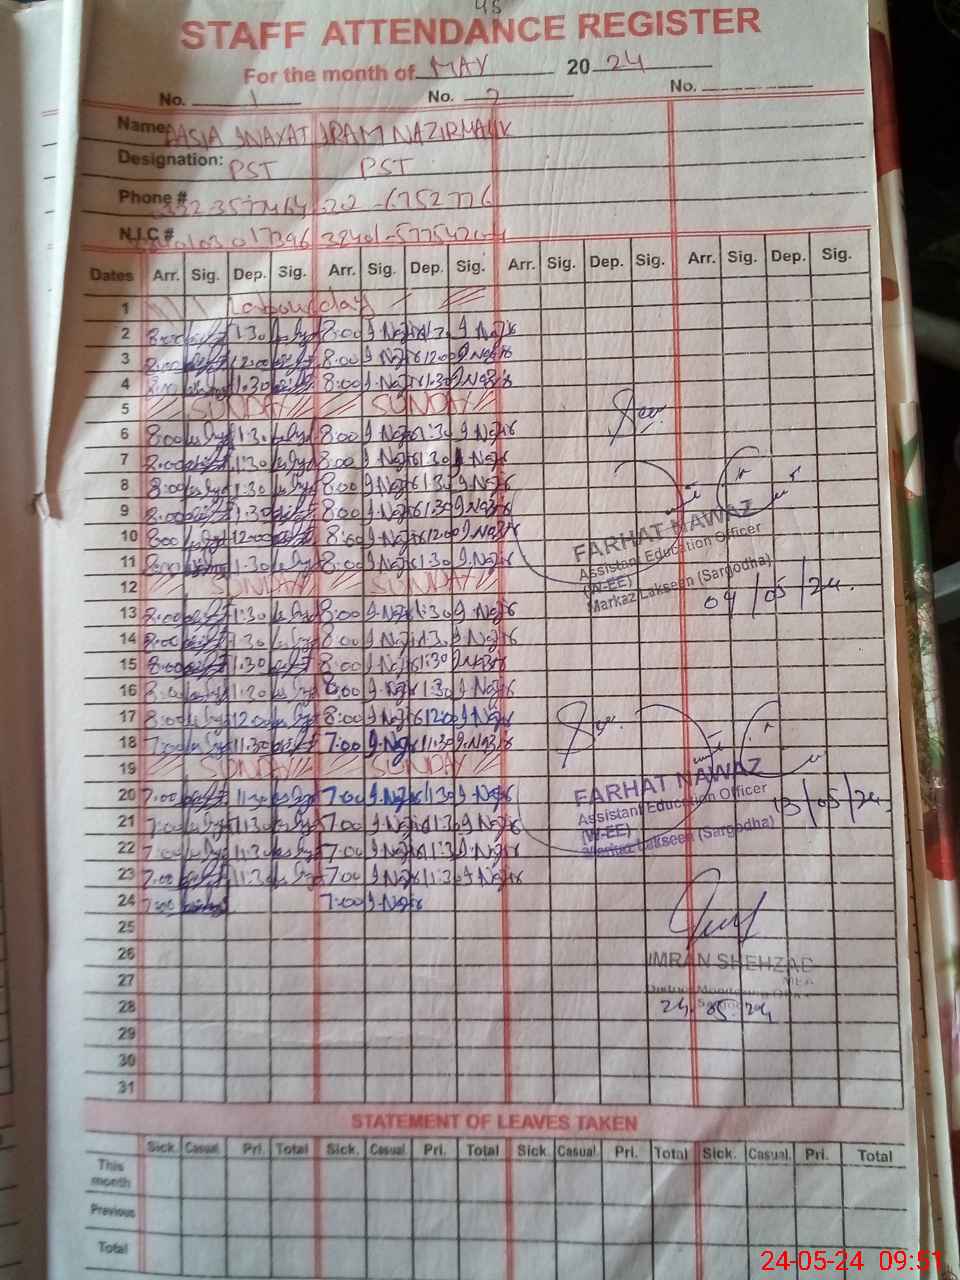 45
STAFF ATTENDANCE REGISTER
For the month of MAY 2024
No. 1 No. 2 No.
Name AASIA INAYAT IRAM NAZIR MALIK
Designation: PST PST
Phone #
N.I.C #
Dates Arr. Sig. Dep. Sig. Arr. Sig. Dep. Sig. Arr. Sig. Dep. Sig. Arr. Sig. Dep. Sig.
1 Labour day
2 8:00 1:30 8:00 I.Nazir 1:30 I.Nazir
3 8:00 12:00 8:00 I.Nazir 12:00 I.Nazir
4 8:00 1:30 8:00 I.Nazir 1:30 I.Nazir
5 SUNDAY SUNDAY
6 8:00 1:30 8:00 I.Nazir 1:30 I.Nazir
7 8:00 1:30 8:00 I.Nazir 1:30 I.Nazir
8 8:00 1:30 8:00 I.Nazir 1:30 I.Nazir
9 8:00 1:30 8:00 I.Nazir 1:30 I.Nazir
10 8:00 12:00 8:00 I.Nazir 12:00 I.Nazir
11 8:00 1:30 8:00 I.Nazir 1:30 I.Nazir
FARHAT NAWAZ
Assistant Education Officer
(W-EE)
Markaz Lakseen (Sargodha)
09/05/24.
12 SUNDAY SUNDAY
13 8:00 1:30 8:00 I.Nazir 1:30 I.Nazir
14 8:00 1:30 8:00 I.Nazir 1:30 I.Nazir
15 8:00 1:30 8:00 I.Nazir 1:30 I.Nazir
16 8:00 1:30 8:00 I.Nazir 1:30 I.Nazir
17 8:00 12:00 8:00 I.Nazir 12:00 I.Nazir
18 7:00 11:30 7:00 I.Nazir 11:30 I.Nazir
19 SUNDAY SUNDAY
20 7:00 11:30 7:00 I.Nazir 11:30 I.Nazir
21 7:00 11:30 7:00 I.Nazir 11:30 I.Nazir
22 7:00 11:30 7:00 I.Nazir 11:30 I.Nazir
FARHAT NAWAZ
Assistant Education Officer
(W-EE)
Markaz Lakseen (Sargodha)
13/05/24.
23 7:00 11:30 7:00 I.Nazir 11:30 I.Nazir
24 7:00 7:00 I.Nazir
25
26
27
28
IMRAN SHEHZAD
24.05.24
29
30
31
STATEMENT OF LEAVES TAKEN
Sick. Casual. Pri. Total Sick. Casual. Pri. Total Sick. Casual. Pri. Total Sick. Casual. Pri. Total
This month
Previous
Total
24-05-24 09:51